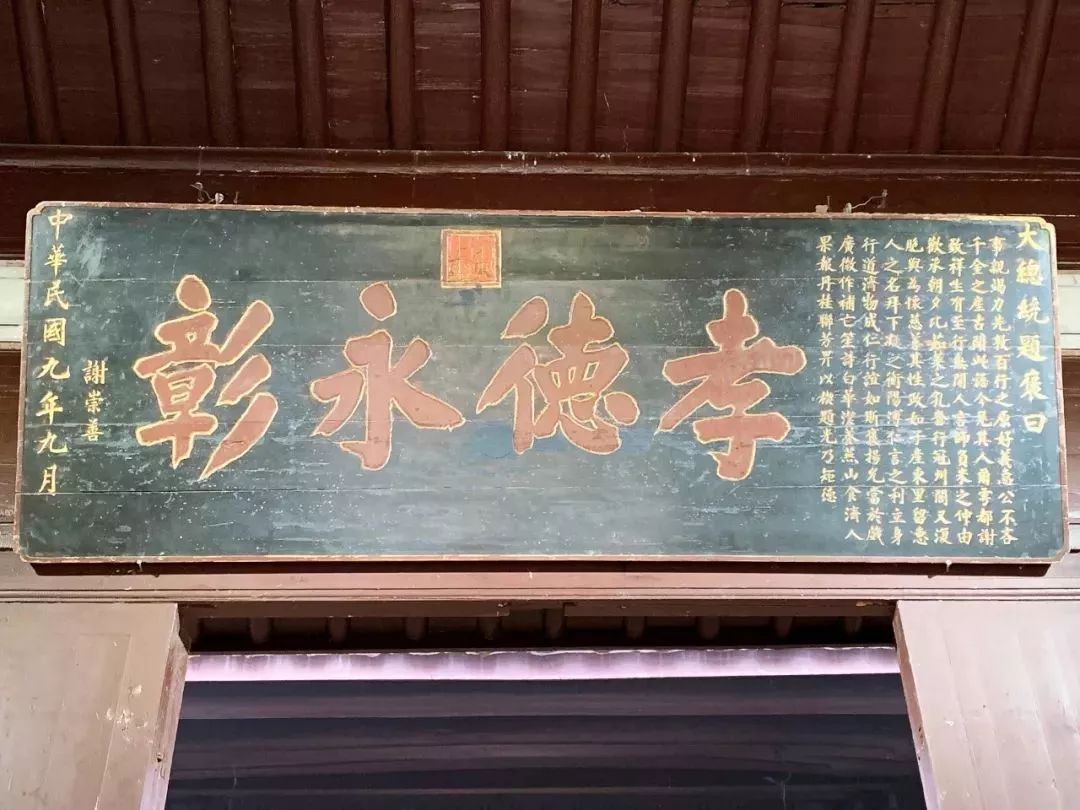 大總統題褒曰
事親竭力先敦百行之原好義急公不吝
千金之產古聞此語今見其人爾雩都謝
致祥生有至行蚤聞人言師負米之仲由
歡承朝夕比萊之孔奮行冠州閭又復
與為懷慈善其性政如子產東里留惠
人之名拜下之衡陽溥仁言之利立身
行道濟物成仁行誼如斯褒揚允當於戲
廣微作補亡笙詩白華潔養燕山食濟人
果報丹桂聯芳畀以楔題光乃矩德
孝德永彰
謝崇善
中華民國九年九月